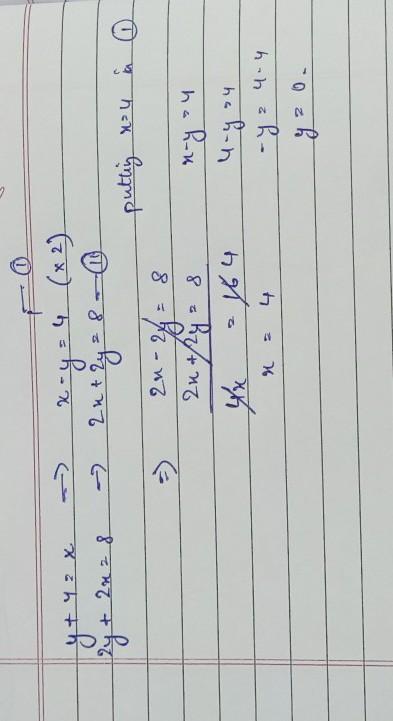 y + 4 = x → x - y = 4 (x 2) — ①
2y + 2x = 8 → 2x + 2y = 8 — ⑪
⇒ 2x - 2y = 8
2x + 2y = 8
4x = 16 4
x = 4
putting x=4 in ①
x-y=4
4-y=4
-y = 4-4
y = 0.